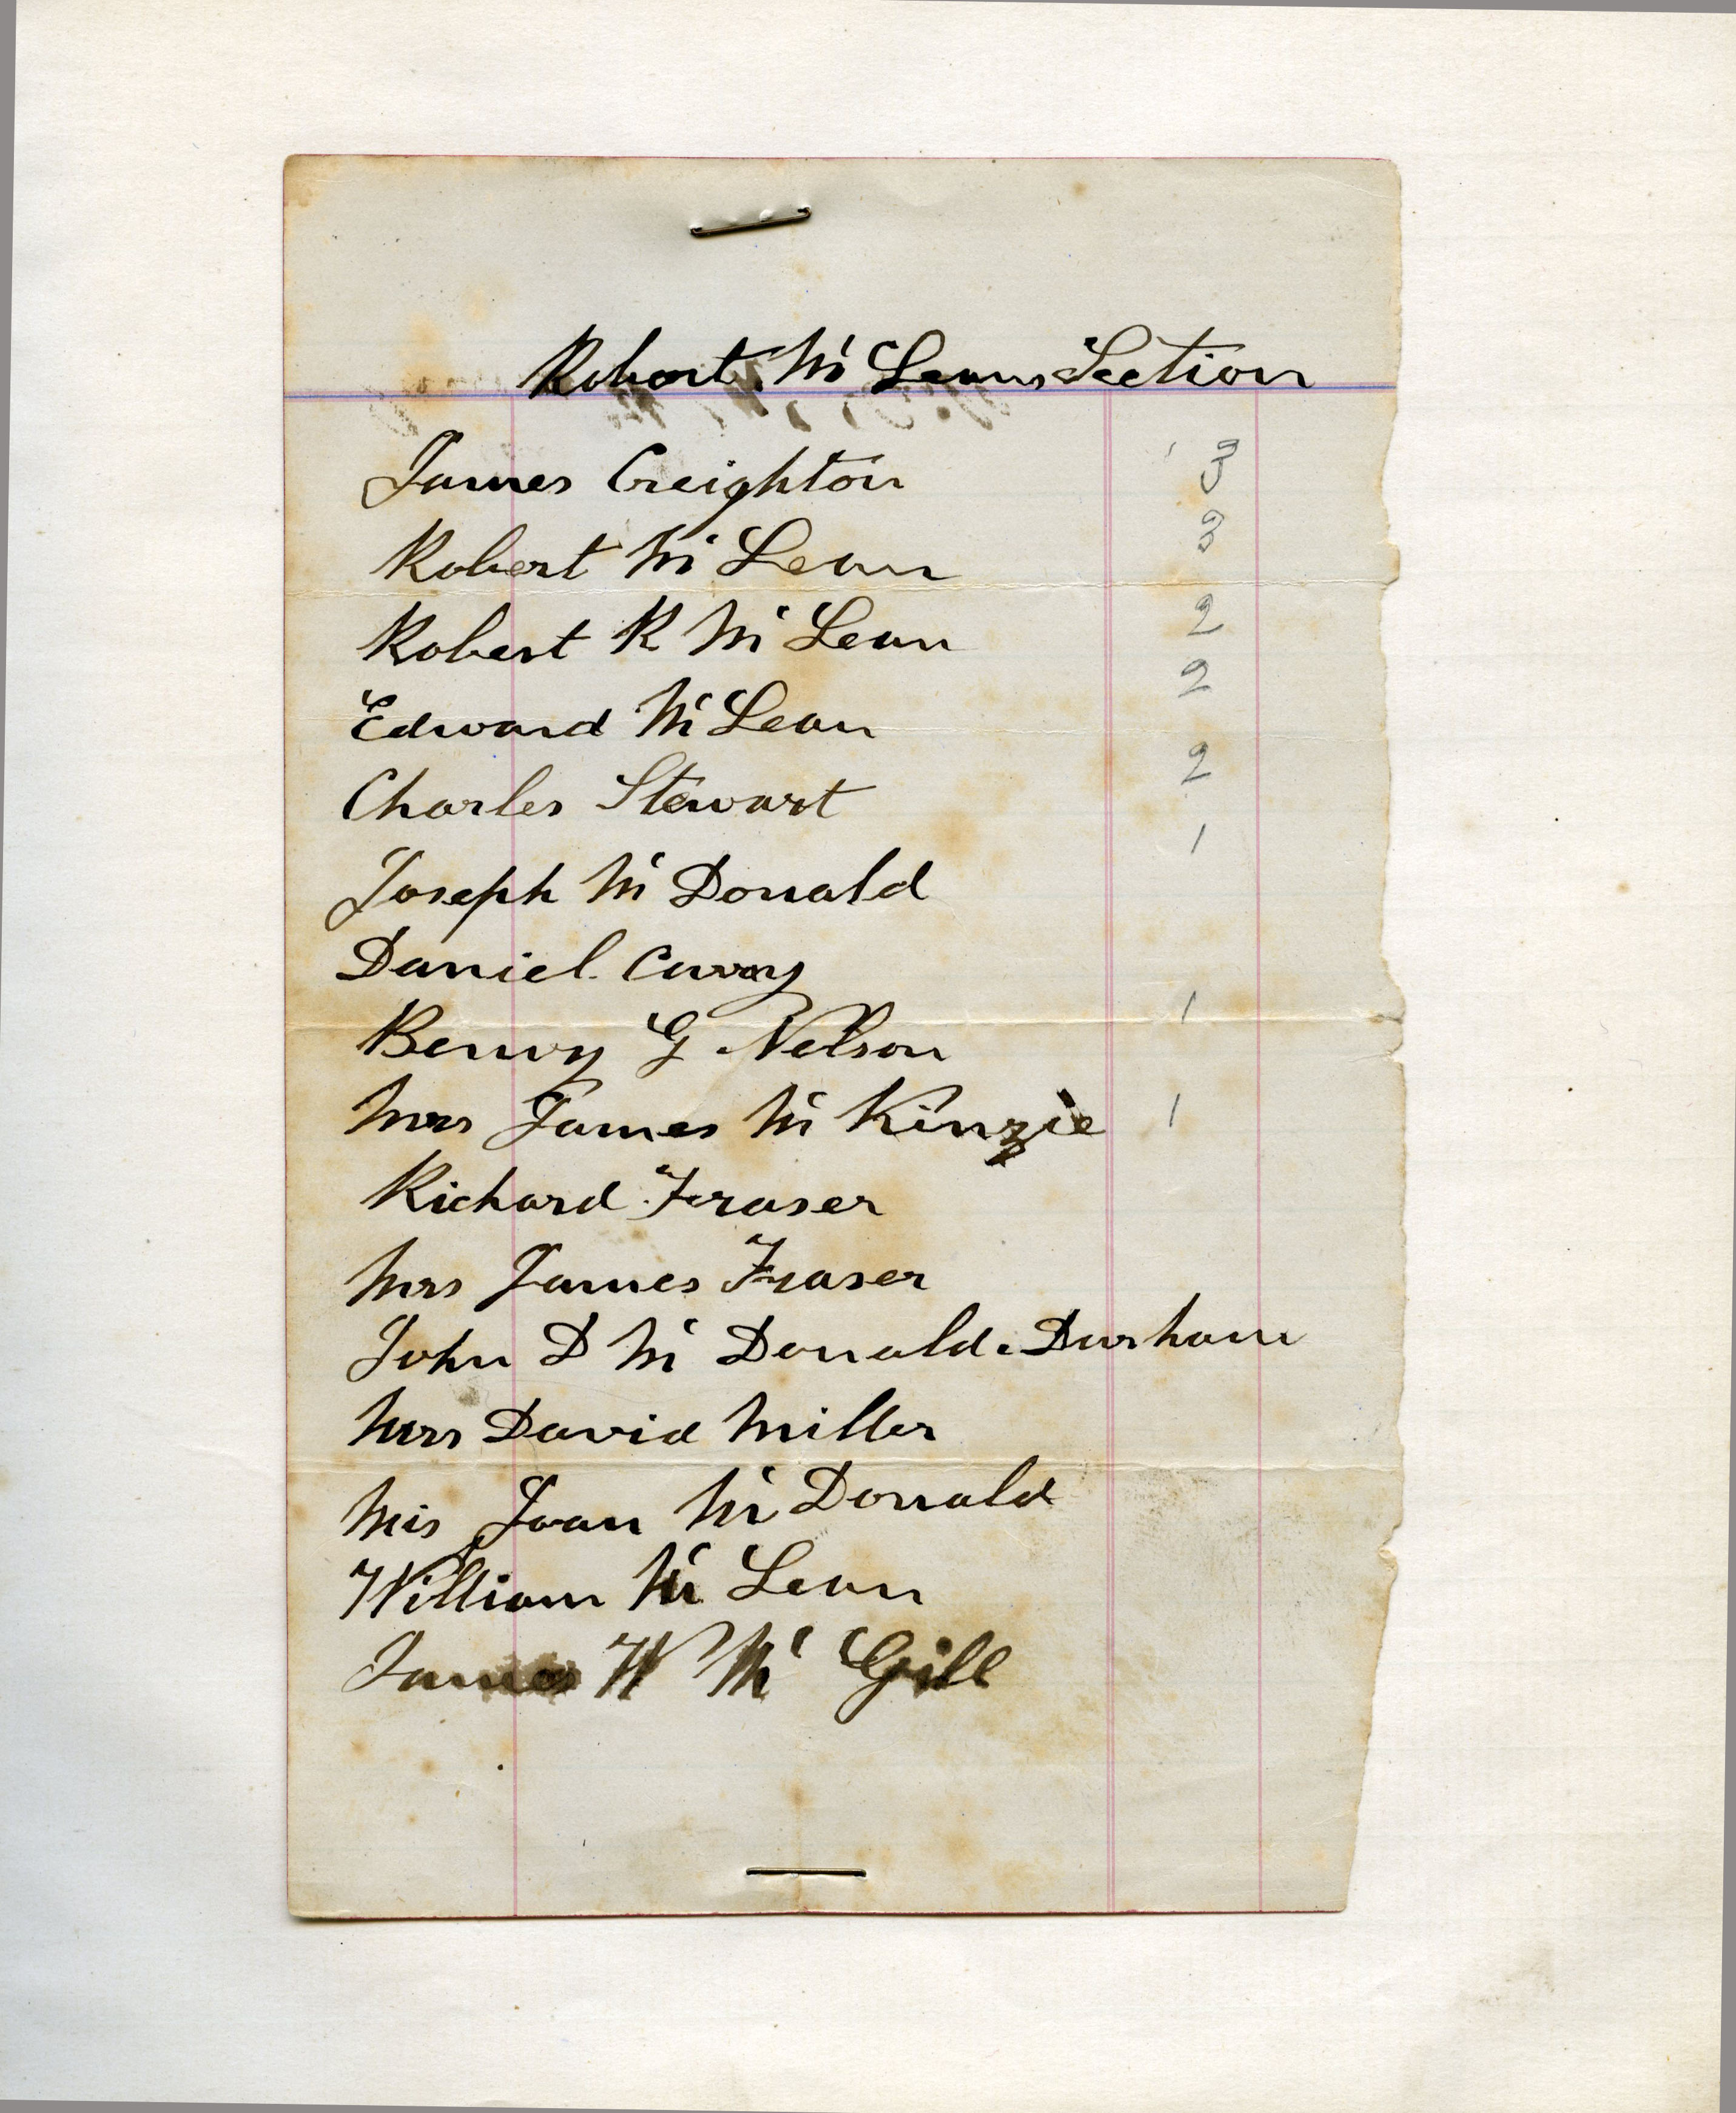 Robert Mc Leans Section
James Creighton 3
Robert Mc Lean 3
Robert R Mc Lean 2
Edward Mc Lean 2
Charles Stewart 2
Joseph Mc Donald 1
Daniel
G Nelson 1
Mrs James Mc Kinzie 1
Richard Fraser
Mrs James Fraser
John D Mc Donald. Durham
Mrs David Miller
Mis Joan Mc Donald
William Mc Lean
James W Mc Gill